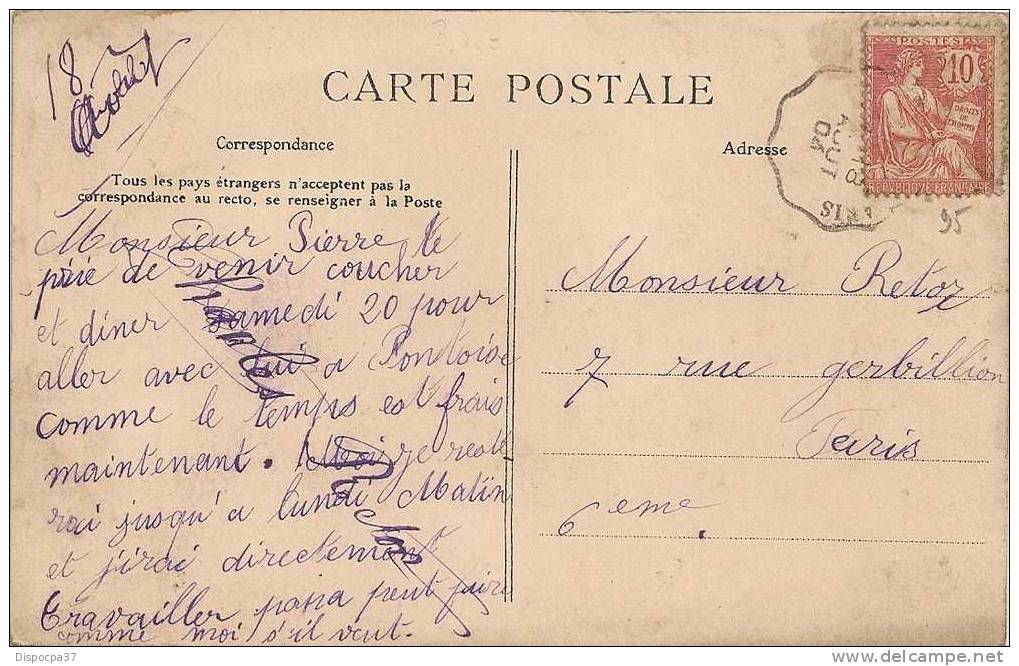 18
CARTE POSTALE
Correspondance
Adresse
Tous les pays étrangers n'acceptent pas la
correspondance au recto, se renseigner à la Poste
POSTES
10
DROITS DE L'HOMME
RÉPUBLIQUE FRANÇAISE
AOUT
04
PARIS
95
Monsieur Pierre te
prie de venir coucher
et diner samedi 20 pour
aller avec lui a Pontoise
comme le temps est frais
maintenant. Moi je reste
rai jusqu'a lundi Matin
et j'irai directement
travailler papa peut faire
comme moi s'il veut.
Charles
Monsieur Retor
7 rue gerbillion
Paris
6eme.
Dispocpa37
www.delcampe.net